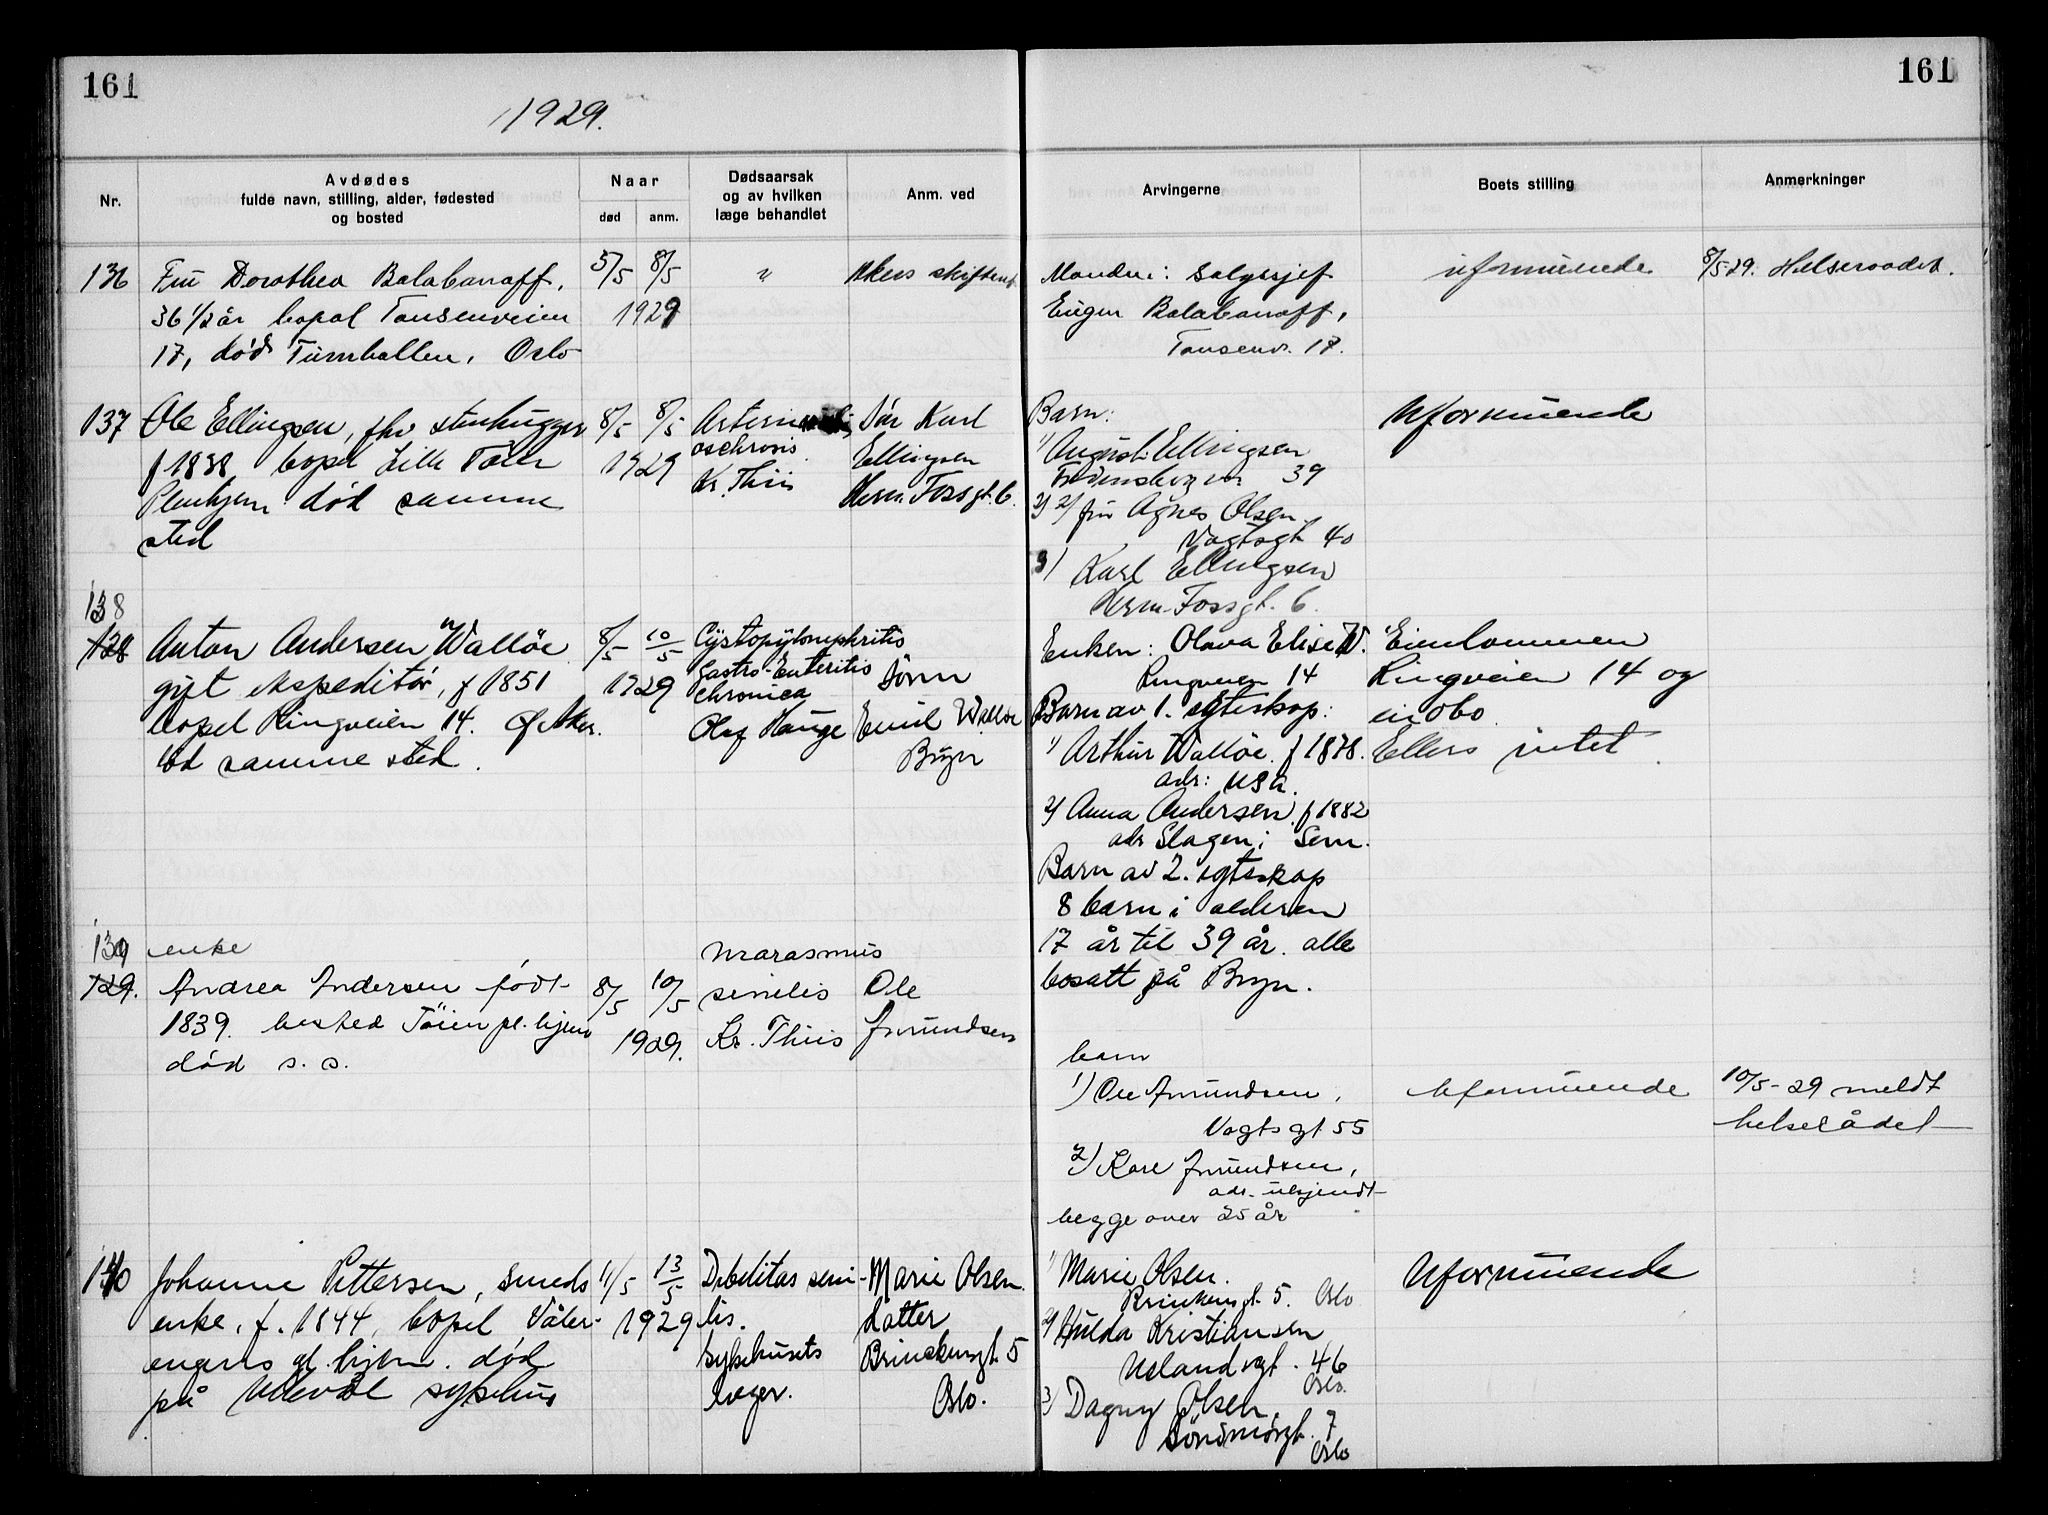 161
161
1929.
Nr.
Avdødes
fulde navn, stilling, alder, fødested
og bosted
Naar
død
anm.
Dødsaarsak
og av hvilken
læge behandlet
Anm. ved
Arvingerne
Boets stilling
Anmerkninger
136
Fru Dorothea Balabanoff,
36 1/2 år bopal Tonsenveien
17, død Turnhallen, Oslo
5/5 8/5
1929
"
Akers skifteret
Manden: Salgssjef
Eugen Balabanoff,
Tonsenv. 17.
uformuende
8/5-29. Helseraadet.
137
Ole Ellingsen, fhv stenhugger
f 1838 bopel Lille Tøien
Pleiehjem død samme
sted
8/5 8/5
1929
osclerosis
Kr. Thiis
Søn Karl
Ellingsen
Herm. Fossgt. 6.
Barn:
1) August Ellingsen
39
2) 2) fru Agnes Olsen
Vogtsgt 40
3) Karl Ellingsen
Herm. Fossgt. 6.
Uformuende
138
128
Anton Andersen Walløe
gift ekspeditør, f 1851
bopel Ringveien 14. Ø. Aker.
død samme sted.
8/5 10/5
1929
Cystopyelonephritis
Gastro-Enteritis
chronica
Olaf Hauge
Sønn
Emil Walløe
Bryn
Enken: Olava Elise W.
Ringveien 14
Barn av 1. egteskap:
1) Arthur Walløe. f 1878.
adr: USA.
2) Anna Andersen f 1882
adr Slagen i Sem.
Barn av 2. egteskap
8 barn i alderen
17 år til 39 år. alle
bosatt på Bryn.
Eiendommen
Ringveien 14 og
innbo.
Ellers intet.
139
129.
enke
Andrea Andersen født
1839. bosted Tøien pl. hjem
død s. s.
8/5 10/5
1929.
marasmus
senilis
Kr. Thiis
Ole
Amundsen
barn
1) Ole Amundsen,
Vogts gt 55
2) Kare Amundsen,
adr. ukjendt
begge over 25 år
Uformuende
10/5-29 meldt
helserådet
140
Johanne Pettersen, smeds
enke, f. 1844, bopel Våler-
engens gl. hjem. død
på Ullevål sykehus
11/5 13/5
1929
Debilitas seni-
lis.
Sykehusets
læger.
Marie Olsen.
datter
Brinckensgt. 5
Oslo.
1) Marie Olsen.
Brinkensgt. 5. Oslo
2) Hulda Kristiansen
Uelandsgt. 46
Oslo.
3) Dagny Olsen,
Søndmørgt. 7
Oslo
Uformuende